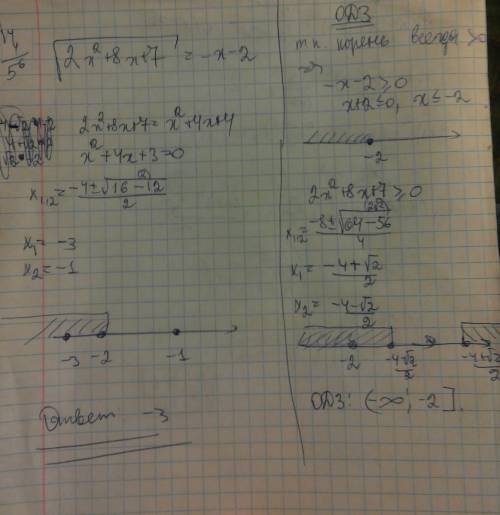 √2x²+8x+7 = -x-2
2x²+8x+7 = x²+4x+4
x²+4x+3=0
x₁,₂ = (-4±√16-12 (2))/2
x₁ = -3
x₂ = -1
-3 -2 -1
Ответ -3
ОДЗ
т.к. корень всегда >0
=>
-x-2≥0
x+2≤0, x≤-2
-2
2x²+8x+7≥0
x₁,₂ = (-8±√64-56 (2√2))/4
x₁ = (-4+√2)/2
x₂ = (-4-√2)/2
-2 (-4-√2)/2 (-4+√2)/2
ОДЗ: (-∞; -2].